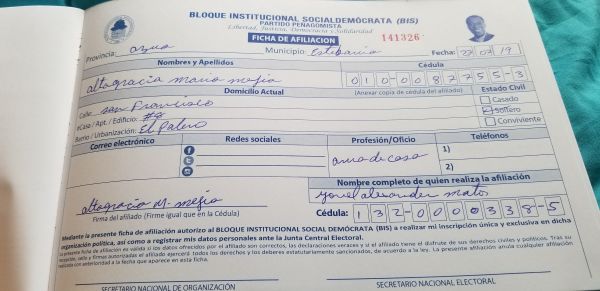 BLOQUE INSTITUCIONAL SOCIALDEMÓCRATA (BIS)
PARTIDO PEÑAGOMISTA
Libertad, Justicia, Democracia y Solidaridad
FICHA DE AFILIACION 141326
Provincia: azua Municipio: Estebania Fecha: 27/07/19
Nombres y Apellidos Cédula
altagracia maria mejia 010-0087755-3
Domicilio Actual (Anexar copia de cédula del afiliado) Estado Civil
Calle: san Francisco Casado
#Casa / Apt. / Edificio: #8 Soltero
Barrio / Urbanización: El Palero Conviviente
Correo electrónico Redes sociales Profesión/Oficio Teléfonos
ama de casa 1)
2)
Nombre completo de quien realiza la afiliación
alexander mato
altagracia M. mejia
Firma del afiliado (Firme igual que en la Cédula) Cédula: 132-0000338-5
Mediante la presente ficha de afiliación autorizo al BLOQUE INSTITUCIONAL SOCIAL DEMÓCRATA (BIS) a realizar mi inscripción única y exclusiva en dicha
organización política, así como a registrar mis datos personales ante la Junta Central Electoral.
La presente ficha de afiliación es valida si los datos ofrecidos por el afiliado son correctos, las declaraciones veraces y si el afiliado tiene el disfrute de sus derechos civiles y políticos. Tras su
sello y firmas autorizadas el afiliado ejercerá todos los derechos y los deberes estatutariamente sancionados, de acuerdo a la ley. La presente afiliación anula cualquier afiliación
realizada con anterioridad a la fecha que aparece en esta ficha.
SECRETARIO NACIONAL DE ORGANIZACIÓN SECRETARIO NACIONAL ELECTORAL